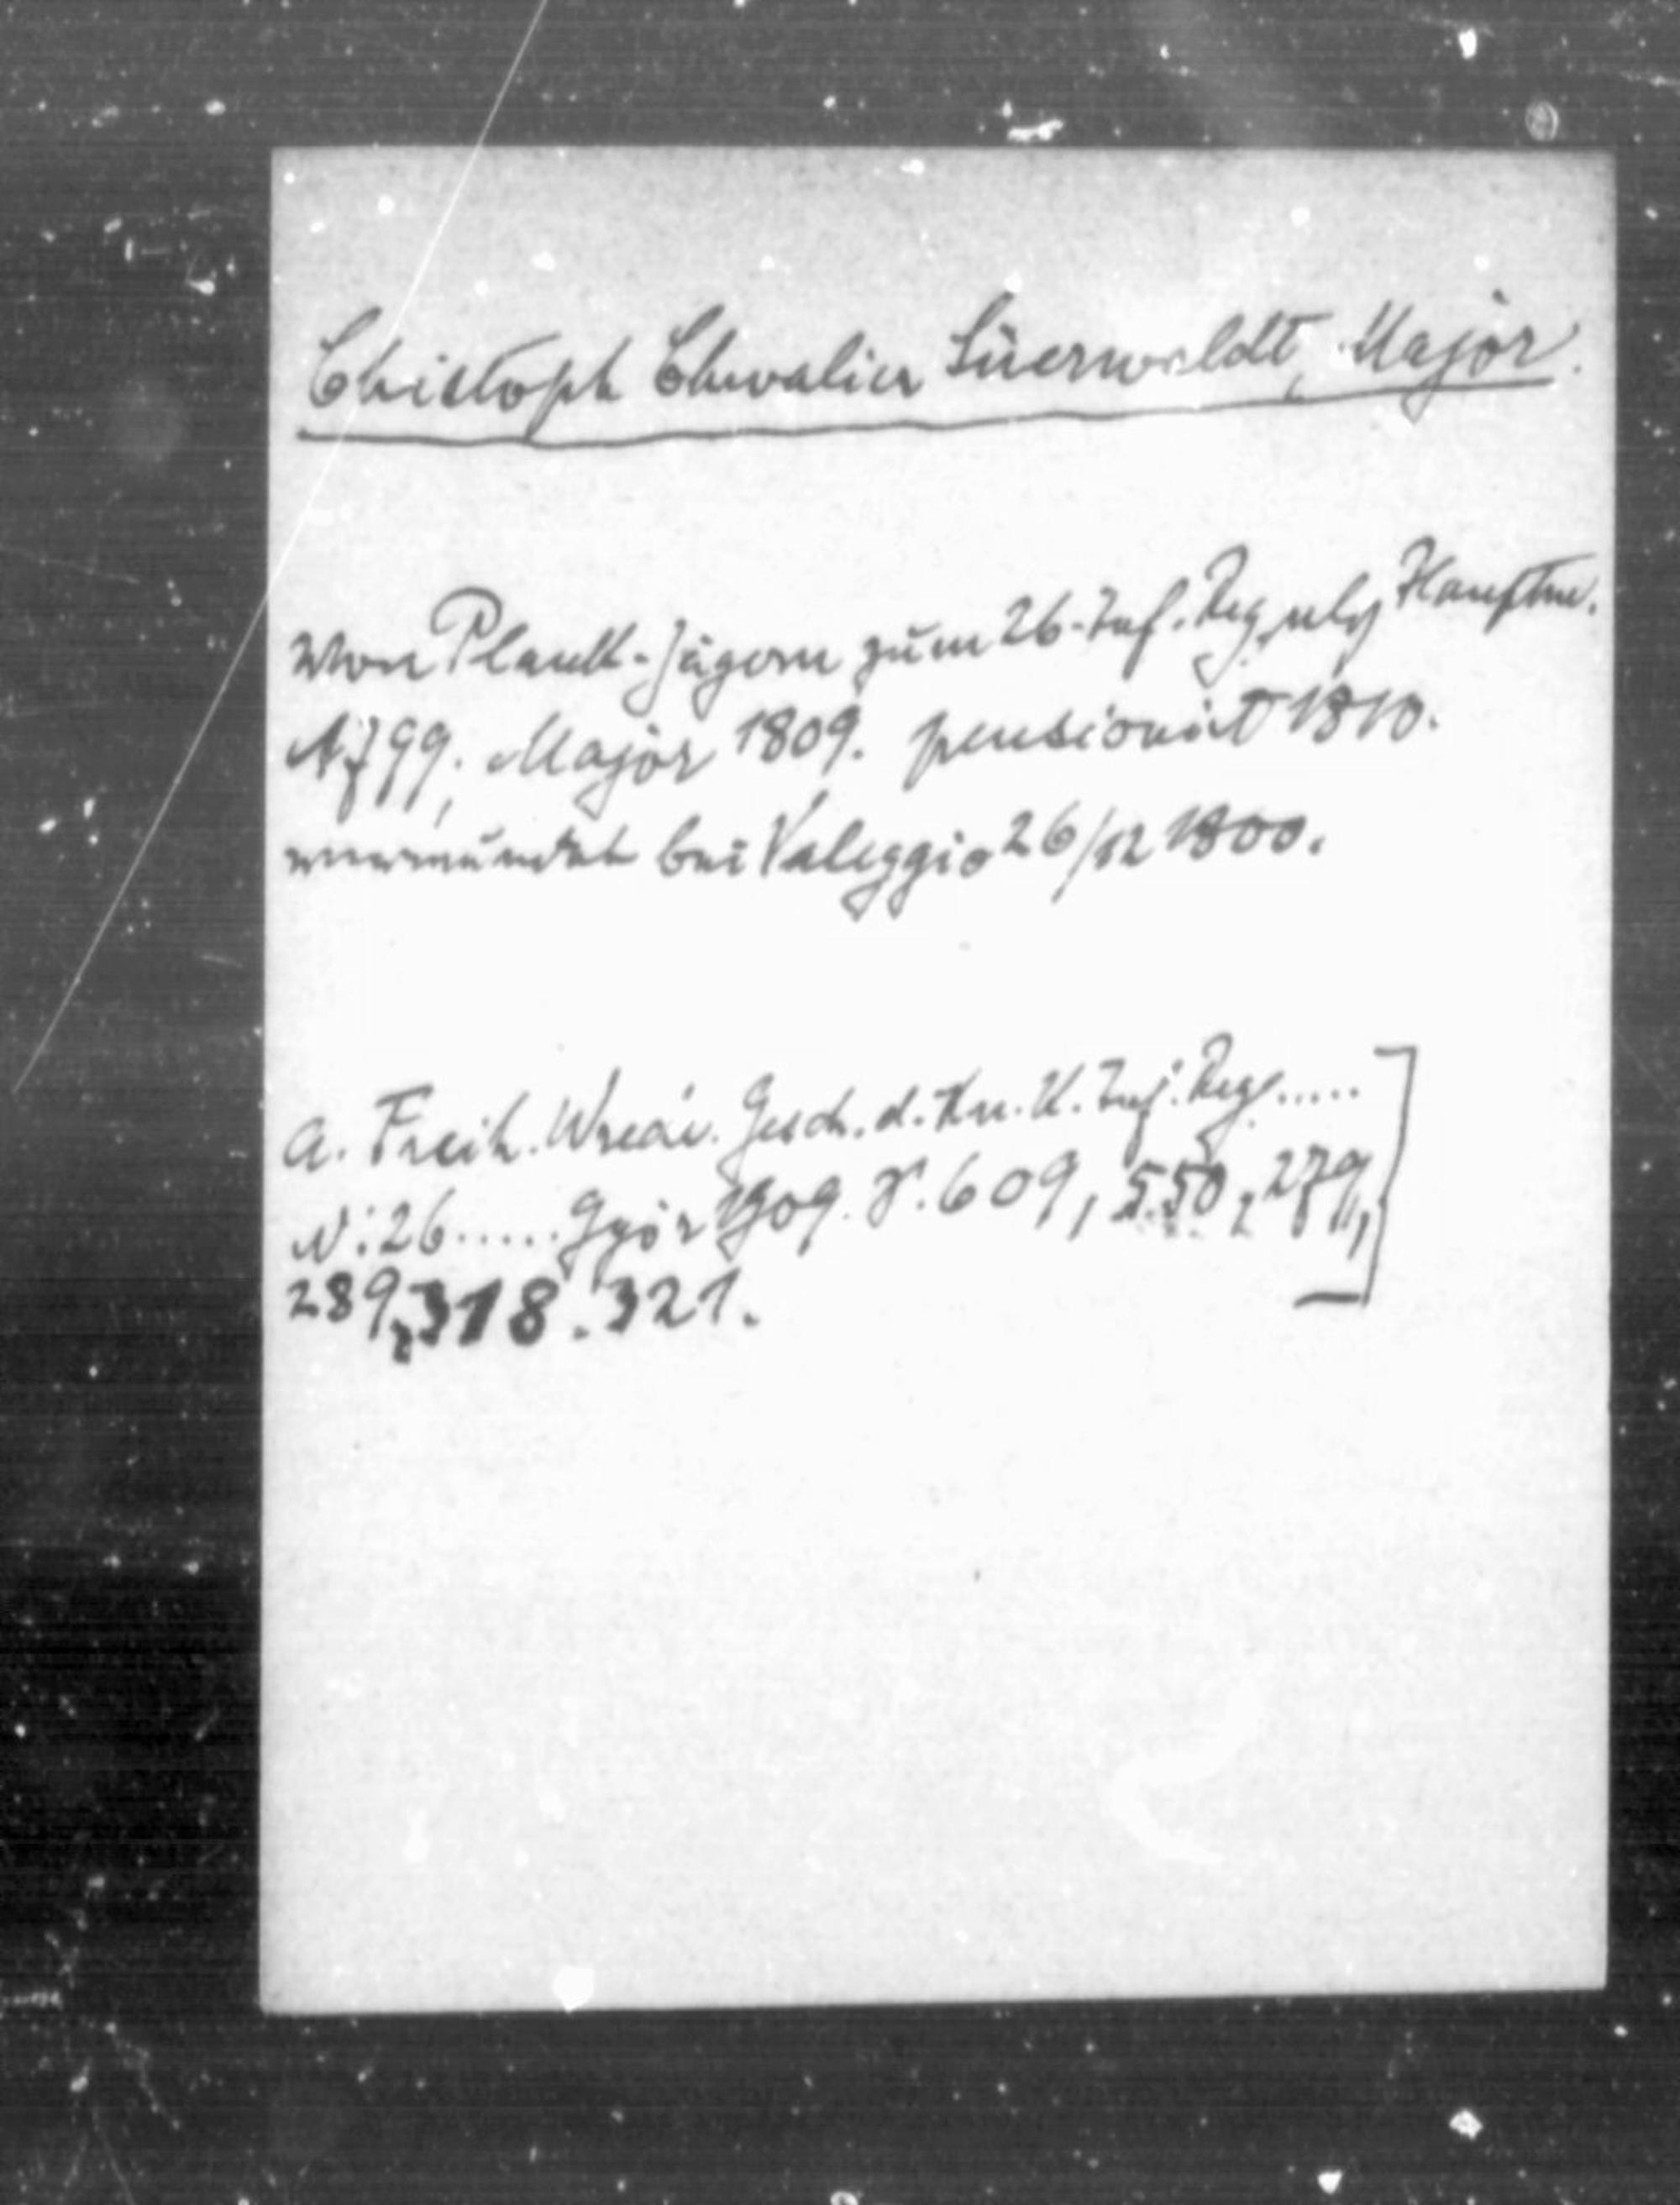 Christoph Chevalier Süerwaldt, Major.
Von Plank-Jägern zum 26. Inf. Reg. als Hauptm.
1799, Major 1809. pensionirt 1810.
verwundet bei Valeggio 26/12 1800.
A. Freih. Wrede. Gesch. d. K. u. K. Inf. Reg.....
N: 26..... Győr 1909. S. 609, 550, 279,
289, 318. 321.